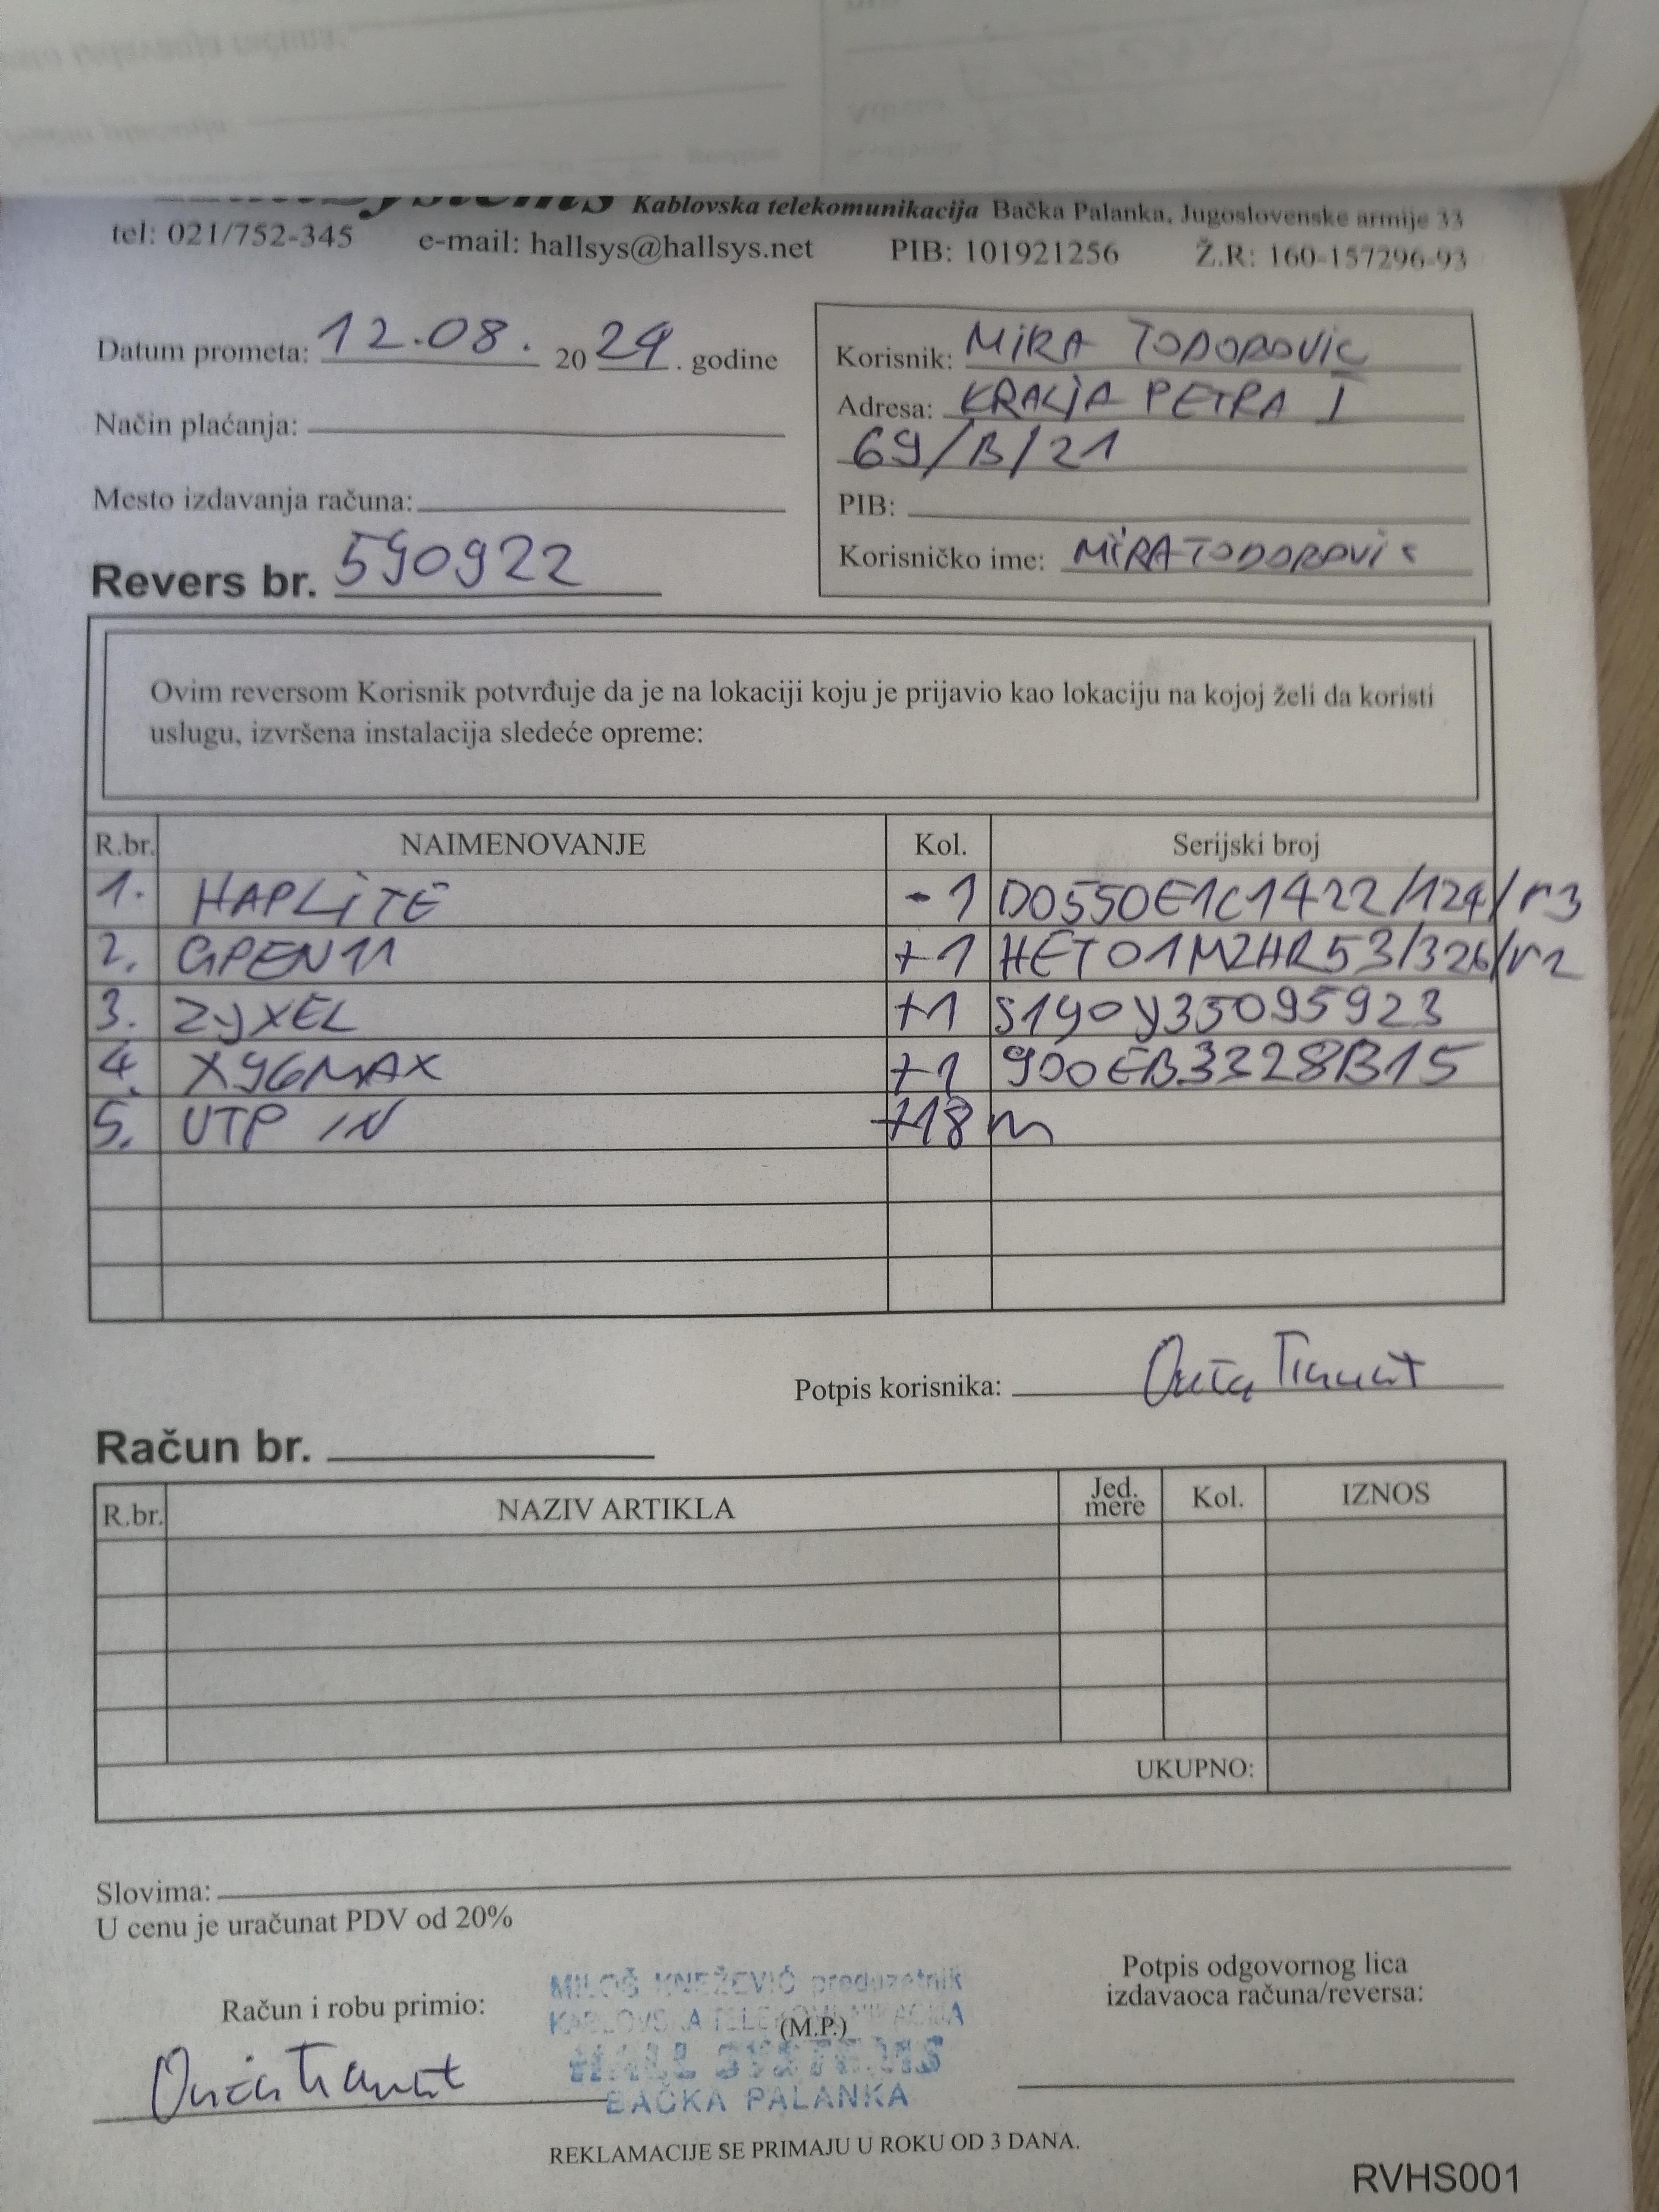 Systems Kablovska telekomunikacija Bačka Palanka, Jugoslovenske armije 33
tel: 021/752-345 e-mail: hallsys@hallsys.net PIB: 101921256 Ž.R: 160-157296-93
Datum prometa: 12.08. 2024. godine
Način plaćanja:
Mesto izdavanja računa:
Revers br. 590922
Korisnik: MiRA TODOROVIC
Adresa: KRALJA PETRA I
69/B/21
PIB:
Korisničko ime: MiRATODOROVIC
Ovim reversom Korisnik potvrđuje da je na lokaciji koju je prijavio kao lokaciju na kojoj želi da koristi
uslugu, izvršena instalacija sledeće opreme:
R.br. NAIMENOVANJE Kol. Serijski broj
1. HAPLiTE -1 D0550E1C1422/124/r3
2. GPEN11 +1 HET01MZHR53/326/r2
3. ZyXEL +1 S190Y35095923
4. X96MAX +1 900EB3328B15
5. UTP IN +18 m
Potpis korisnika:
Račun br.
R.br. NAZIV ARTIKLA Jed. mere Kol. IZNOS
UKUPNO:
Slovima:
U cenu je uračunat PDV od 20%
Račun i robu primio:
MILOŠ KNEŽEVIĆ preduzetnik
KABLOVSKA TELEKOMUNIKACIJA
(M.P.)
HALL SYSTEMS
BAČKA PALANKA
Potpis odgovornog lica
izdavaoca računa/reversa:
REKLAMACIJE SE PRIMAJU U ROKU OD 3 DANA.
RVHS001